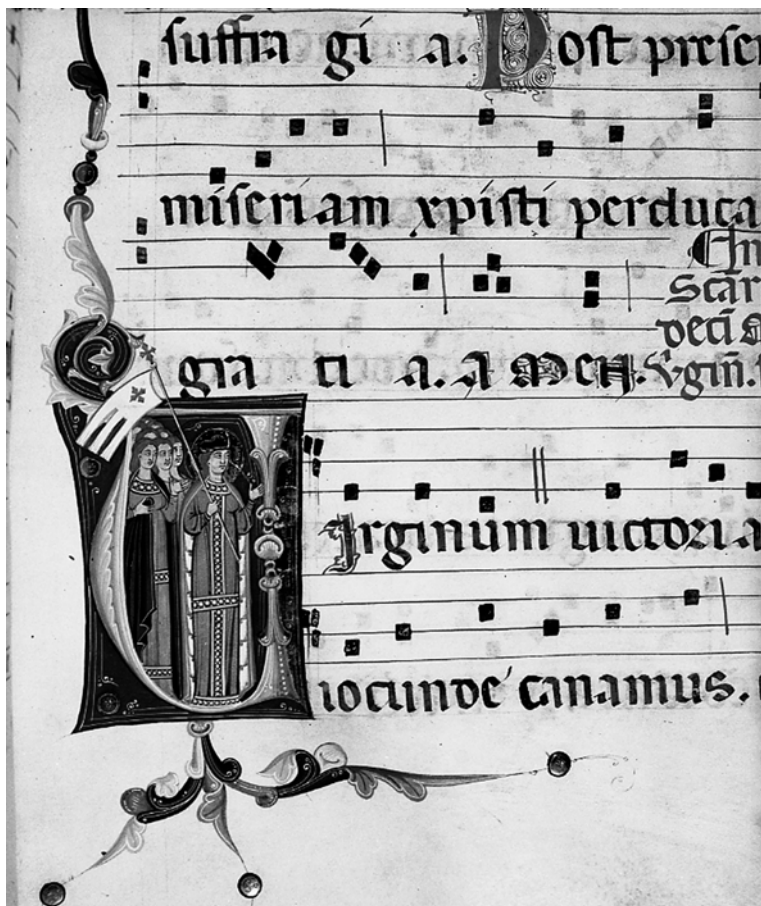 suffra gi a. Post prese
miseri am xpisti perduca
In
Scar
deci
gra ti a. a men. Vgin̄.
Virginum uictoria
iocunde canamus.